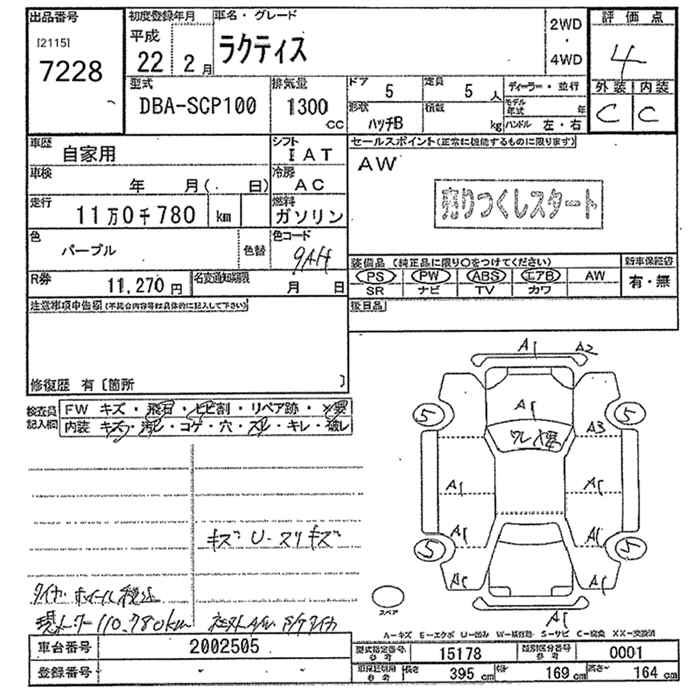 出品番号
[2115]
7228
初度登録年月
平成
22 2 月
車名・グレード
ラクティス
2WD
・
4WD
評価点
4
外装 内装
C C
型式
DBA-SCP100
排気量
1300
CC
ドア
5
定員
5 人
形状
ハッチB
積載
kg
ディーラー・並行
モデル年式 年
ハンドル 左・右
車歴
自家用
シフト
IAT
車検
年 月( 日)
冷房
AC
走行
11万0千780 km
燃料
ガソリン
色
パープル
色替
色コード
9AH
R券
11,270 円
名変通知期限
月 日
セールスポイント(正常に機能するものに限ります)
AW
売りつくしスタート
装備品 (純正品に限り〇をつけてください)
PS PW ABS エアB AW
SR ナビ TV カワ
新車保証書
有・無
後日品
注意事項申告欄(不具合内容等は具体的に記入して下さい)
修復歴 有〔箇所 〕
検査員記入欄
FW キズ・飛石・ヒビ割・リペア跡・×要
内装 キズ・汚レ・コゲ・穴・スレ・キレ・破レ
キズ U-スリキズ
現メーター110.780km
A1 A2
A1
5 5
A3
A1 A1
A1 A1
5 5
A1 A1
A1
スペア
A-キズ E-エクボ U-凹み W-補修跡 S-サビ C-腐食 XX-交換済
車台番号 2002505
登録番号
型式指定番号 参考 15178
類別区分番号 参考 0001
長さ 395 cm
幅 169 cm
高さ 164 cm